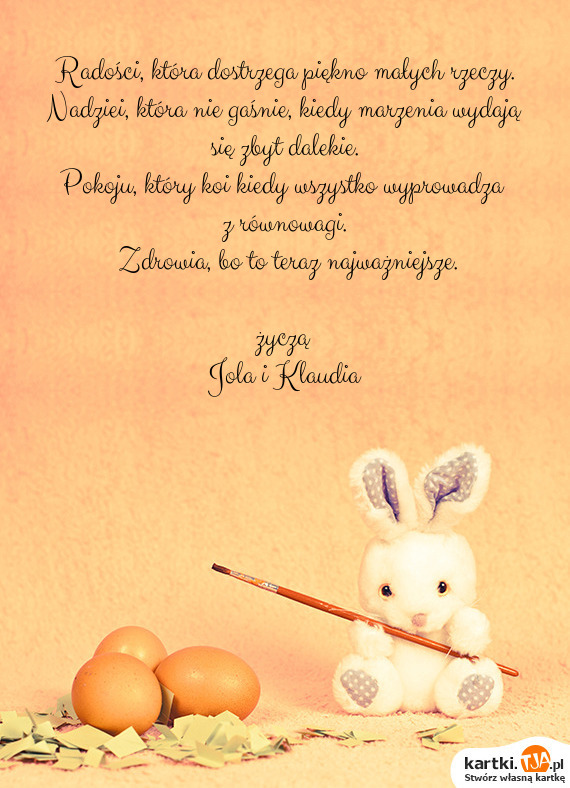 Radości, która dostrzega piękno małych rzeczy.
Nadziei, która nie gaśnie, kiedy marzenia wydają
się zbyt dalekie.
Pokoju, który koi kiedy wszystko wyprowadza
z równowagi.
Zdrowia, bo to teraz najważniejsze.
życzą
Jola i Klaudia
kartki.TJA.pl
Stwórz własną kartkę